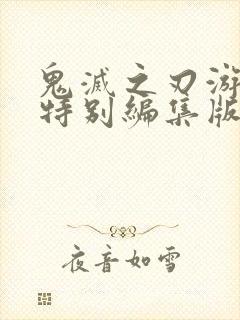 鬼滅之刃游
特别編集版
夜音如雪